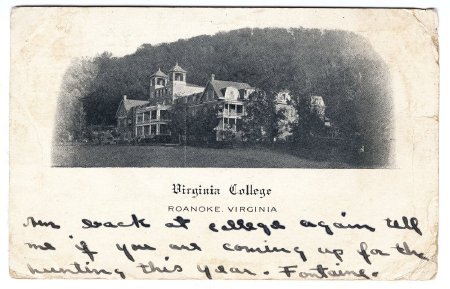 Virginia College
ROANOKE, VIRGINIA
Am back at college again tell
me if you are coming up for the
hunting this year. Fontaine.